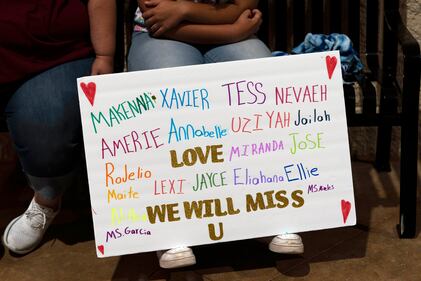 MAKENNA XAVIER TESS NEVAEH
AMERIE Annabelle UZIYAH Jailah
LOVE MIRANDA JOSE
Rodelio
Maite LEXI JAYCE Eliahana Ellie
WE WILL MISS
U
MS. Garcia